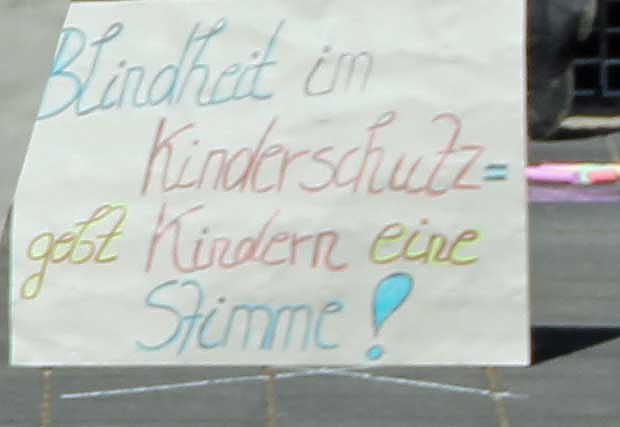 Blindheit im
Kinderschutz=
gebt Kindern eine
Stimme!